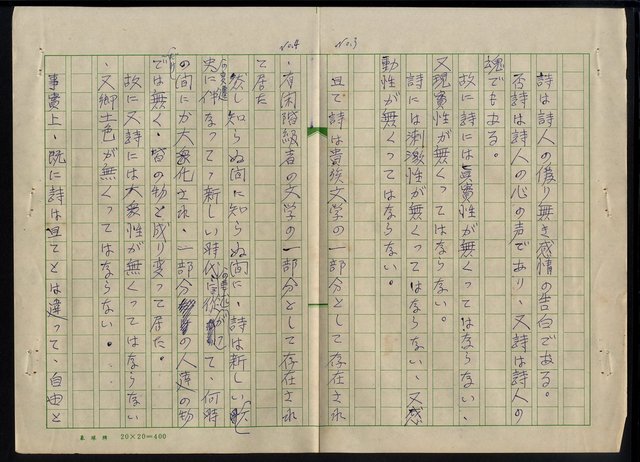 No.3
詩は詩人の偽り無き感情の告白である。
否詩は詩人の心の声であり、又詩は詩人の
魂でもある。
故に詩には真実性が無くってはならない、
又現実性が無くってはならない。
詩には刺激性が無くってはならない、又感
動性が無くってはならない。
且て詩は貴族文学の一部分として存在され
No.4
、有閑階級者の文学の一部分として存在され
て居た
然し知らぬ間に知らぬ間に、詩は新しい歴
史に伴なって、新しい時代に て、何時
の間にか大衆化され、一部分の人達の物
では無く、皆の物と成り変って居た。
故に又詩には大衆性が無くってはならない
、又郷土色が無くってはならない。
事実上、既に詩は且てとは違って、自由と
20×20=400